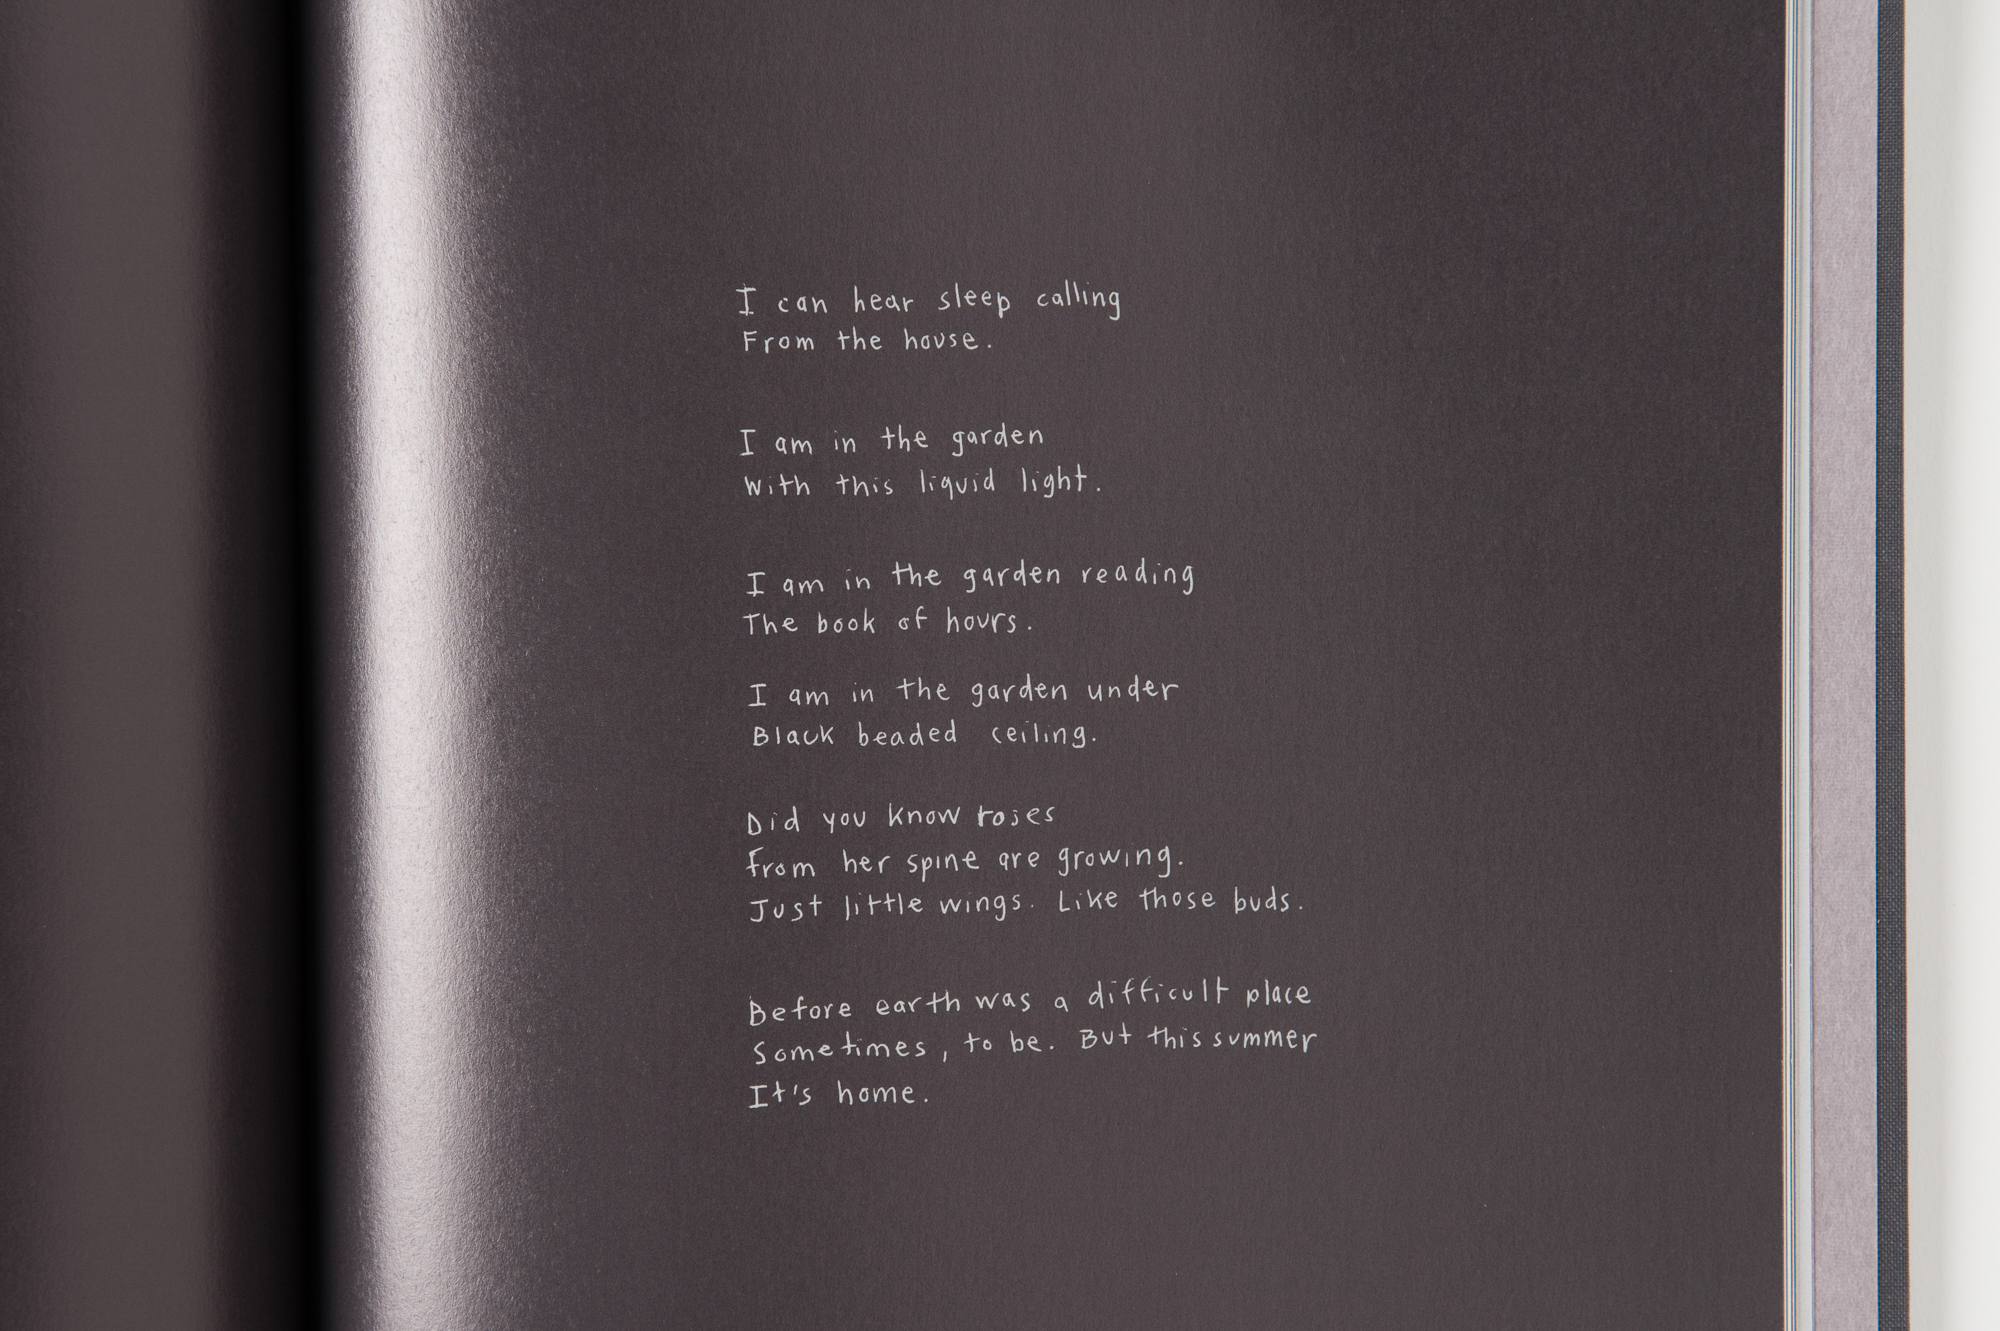 I can hear sleep calling
From the house.
I am in the garden
With this liquid light.
I am in the garden reading
The book of hours.
I am in the garden under
Black beaded ceiling.
Did you know roses
from her spine are growing.
Just little wings. Like those buds.
Before earth was a difficult place
Sometimes, to be. But this summer
It's home.